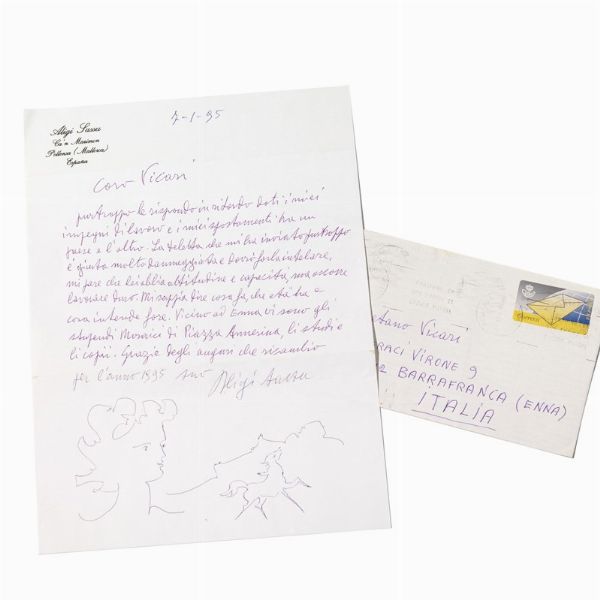 Aligi Sassu
Ca'n Marimon
Pollensa (Mallorca)
España
7-1-95
Caro Vicari
purtroppo le rispondo in ritardo dati i miei
impegni di lavoro e i miei spostamenti tra un
paese e l'altro. La teletta che mi ha inviato purtroppo
è giunta molto danneggiata e dovrò farla intelare,
mi pare che lei abbia attitudine e capacità, ma occorre
lavorare duro. Mi sappia dire cosa fa, che età ha e
cosa intende fare. Vicino ad Enna vi sono gli
stupendi Mosaici di Piazza Armerina, li studi e
li copii. Grazie degli auguri che ricambio
per l'anno 1995 suo Aligi Sassu
etano Vicari
RACI VIRONE 9
2 BARRAFRANCA (ENNA)
ITALIA